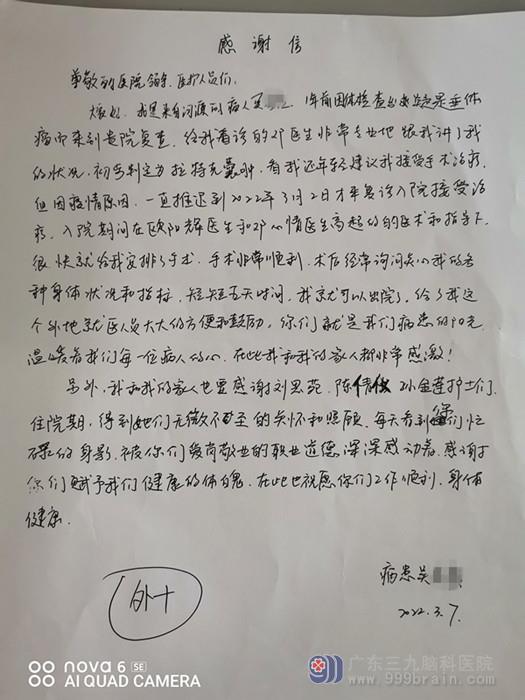 感谢信
尊敬的医院领导、医护人员们:
您好,我是来自河源的病人吴 1年前因体检查出疑是垂体
瘤而来到贵院复查,给我看诊的邓医生非常专业地跟我讲了我
的状况,初步判定为拉特克囊肿,看我还年轻建议我接受手术治疗,
但因疫情原因,一直推迟到2022年3月2日才来复诊入院接受治
疗,入院期间在欧阳辉医生和邓 情医生高超的的医术和指导下,
很快就给我安排了手术,手术非常顺利,术后经常询问关心我的各
种身体状况和指标,短短五天时间,我就可以出院了,给了我这
个外地就医人员大大的方便和鼓励,你们就是我们病患的阳光
温暖着我们每一位病人的心,在此我和我的家人都非常感激!
另外,我和我的家人也要感谢刘思苑、陈倩仪 孙金莲护士们,
住院期,得到她们无微不至的关怀和照顾,每天看到你们忙
碌的身影,被你们爱岗敬业的职业道德深深感动着,感谢
你们赋予我们健康的体魄,在此也祝愿你们工作顺利,身体
健康.
病患吴
2022.3.7.
外十
nova 6 SE
AI QUAD CAMERA
广东三九脑科医院
www.999brain.com